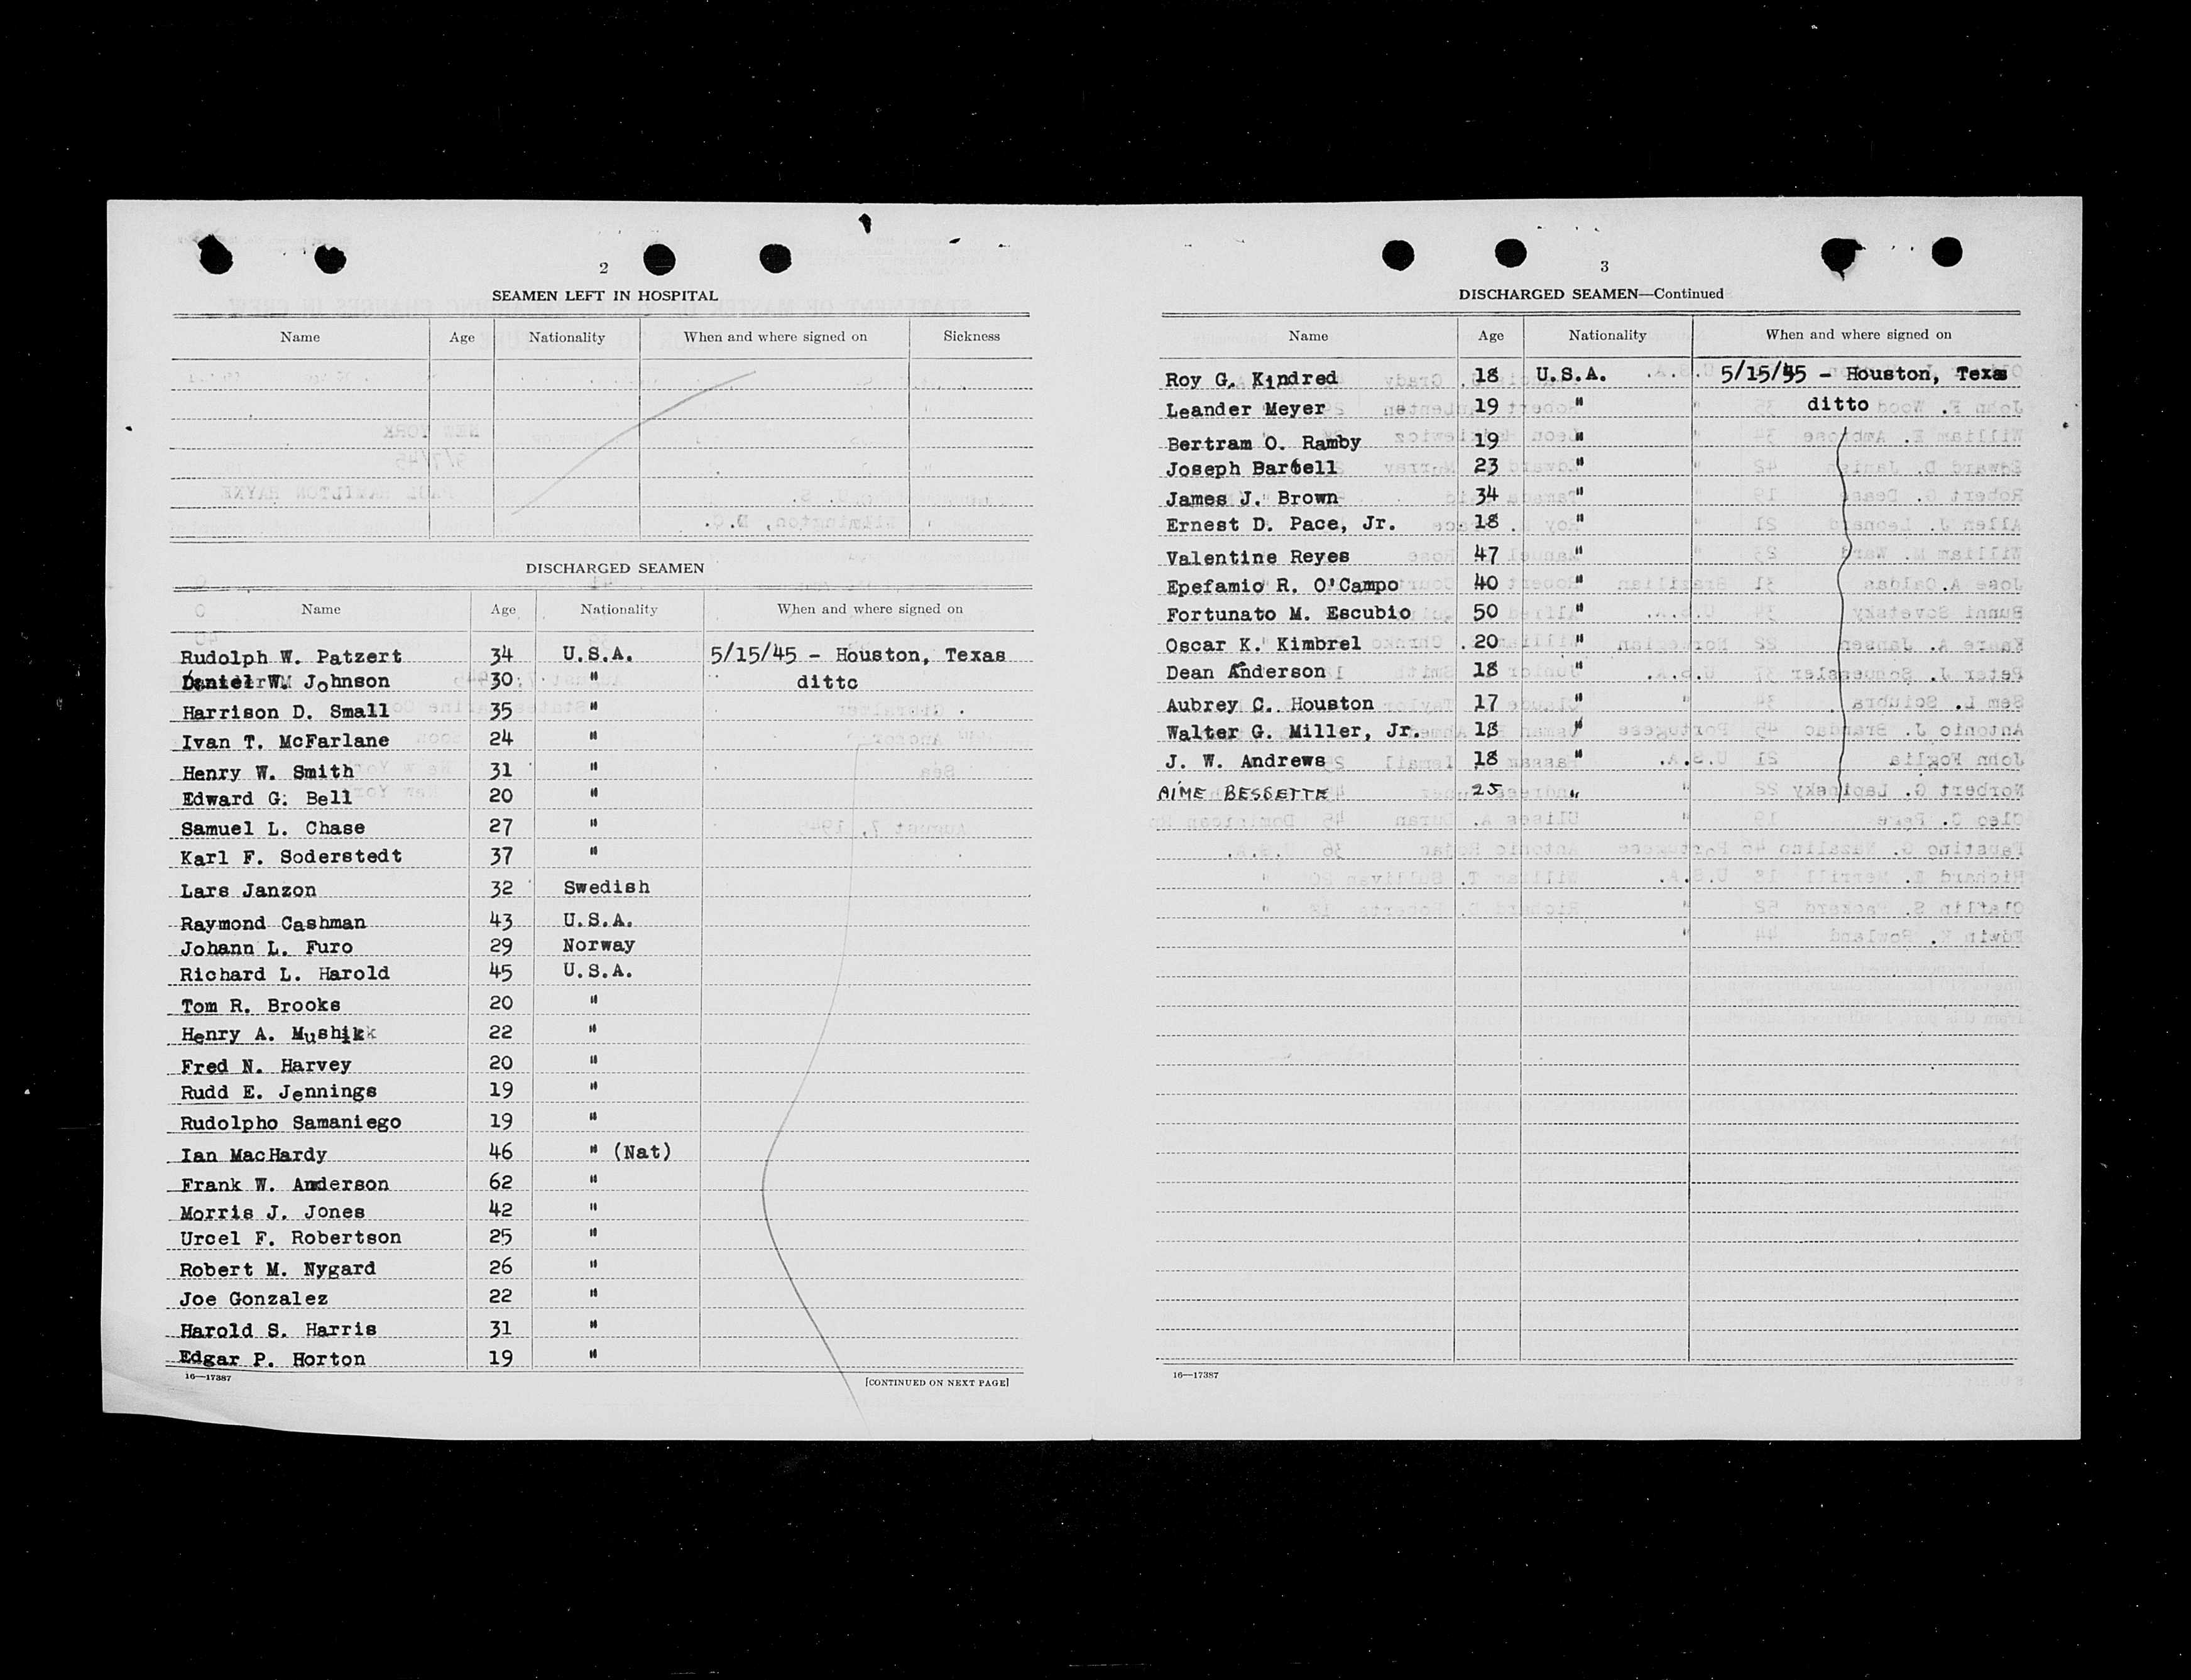 2
SEAMEN LEFT IN HOSPITAL
Name Age Nationality When and where signed on Sickness
DISCHARGED SEAMEN
Name Age Nationality When and where signed on
Rudolph W. Patzert 34 U.S.A. 5/15/45 - Houston, Texas
Daniel W. Johnson 30 " ditto
Harrison D. Small 35 "
Ivan T. McFarlane 24 "
Henry W. Smith 31 "
Edward G. Bell 20 "
Samuel L. Chase 27 "
Karl F. Soderstedt 37 "
Lars Janzon 32 Swedish
Raymond Cashman 43 U.S.A.
Johann L. Furo 29 Norway
Richard L. Harold 45 U.S.A.
Tom R. Brooks 20 "
Henry A. Mushik 22 "
Fred N. Harvey 20 "
Rudd E. Jennings 19 "
Rudolpho Samaniego 19 "
Ian MacHardy 46 " (Nat)
Frank W. Anderson 62 "
Morris J. Jones 42 "
Urcel F. Robertson 25 "
Robert M. Nygard 26 "
Joe Gonzalez 22 "
Harold S. Harris 31 "
Edgar P. Horton 19 "
16—17387
[CONTINUED ON NEXT PAGE]
3
DISCHARGED SEAMEN—Continued
Name Age Nationality When and where signed on
Roy G. Kindred 18 U.S.A. 5/15/45 - Houston, Texas
Leander Meyer 19 " ditto
Bertram O. Ramby 19 "
Joseph 23 "
James J. Brown 34 "
Ernest D. Pace, Jr. 18 "
Valentine Reyes 47 "
Epefamio R. O'Campo 40 "
Fortunato M. Escubio 50 "
Oscar K. Kimbrel 20 "
Dean Anderson 18 "
Aubrey C. Houston 17 "
Walter G. Miller, Jr. 18 "
J. W. Andrews 18 "
AIME BESSETTE 25 "
16—17387